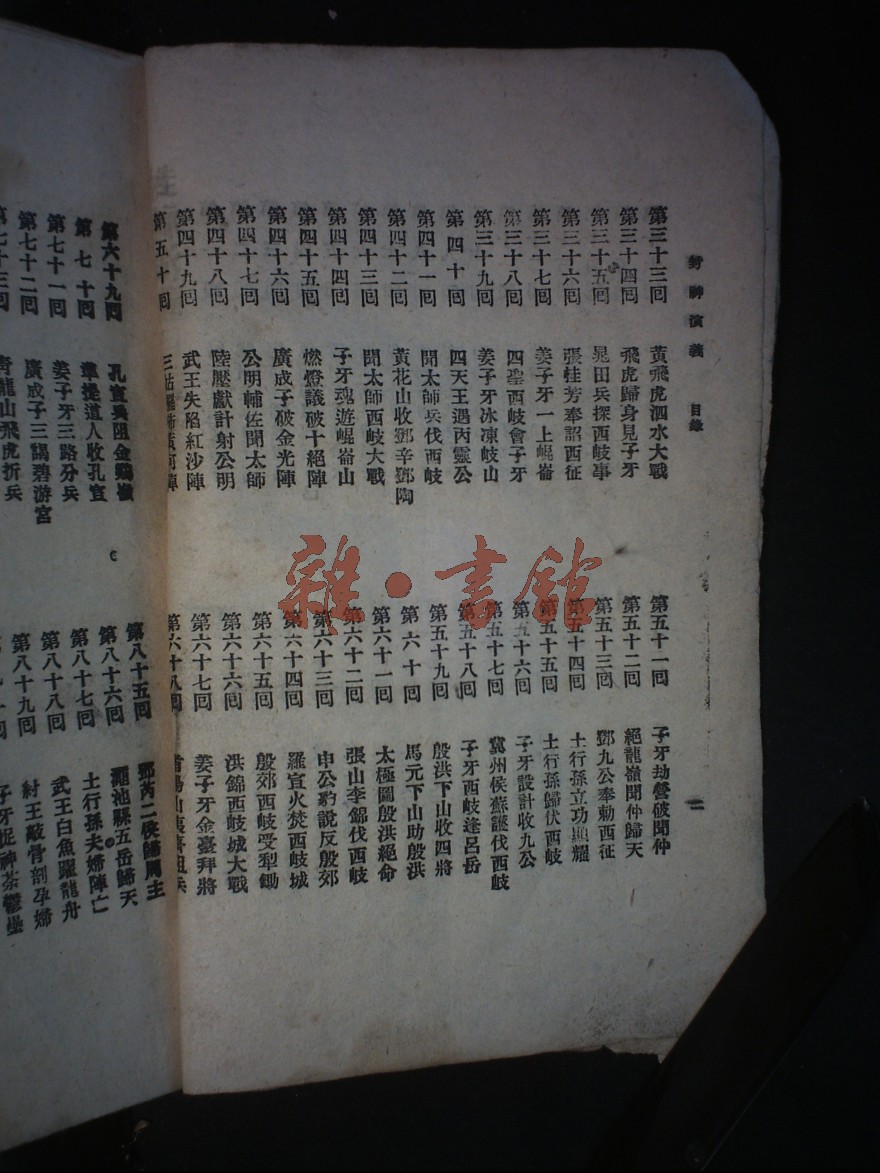 封神演義 目錄 二
第三十三回 黃飛虎泗水大戰
第三十四回 飛虎歸身見子牙
第三十五回 晁田兵探西岐事
第三十六回 張桂芳奉詔西征
第三十七回 姜子牙一上崐崙
第三十八回 四聖西岐會子牙
第三十九回 姜子牙冰凍岐山
第四十回 四天王遇丙靈公
第四十一回 聞太師兵伐西岐
第四十二回 黃花山收鄧辛張陶
第四十三回 聞太師西岐大戰
第四十四回 子牙魂遊崐崙山
第四十五回 燃燈議破十絕陣
第四十六回 廣成子破金光陣
第四十七回 公明輔佐聞太師
第四十八回 陸壓獻計射公明
第四十九回 武王失陷紅沙陣
第五十回 三姑
第五十一回 子牙劫營破聞仲
第五十二回 絕龍嶺聞仲歸天
第五十三回 鄧九公奉勅西征
第五十四回 土行孫立功顯耀
第五十五回 土行孫歸伏西岐
第五十六回 子牙設計收九公
第五十七回 冀州侯蘇護伐西岐
第五十八回 子牙西岐逢呂岳
第五十九回 殷洪下山收四將
第六十回 馬元下山助殷洪
第六十一回 太極圖殷洪絕命
第六十二回 張山李錦伐西岐
第六十三回 申公豹說反殷郊
第六十四回 羅宣火焚西岐城
第六十五回 殷郊西岐受犁鋤
第六十六回 洪錦西岐城大戰
第六十七回 姜子牙金臺拜將
第六十八回 首陽山夷齊阻兵
第六十九回 孔宣兵阻金雞嶺
第七十回 準提道人收孔宣
第七十一回 姜子牙三路分兵
第七十二回 廣成子三謁碧游宮
第七十三回 青龍山飛虎折兵
第八十五回 鄧芮二侯歸周主
第八十六回 澠池縣五岳歸天
第八十七回 土行孫夫婦陣亡
第八十八回 武王白魚躍龍舟
第八十九回 紂王敲骨剖孕婦
子牙捉神荼鬱壘
雜·書館